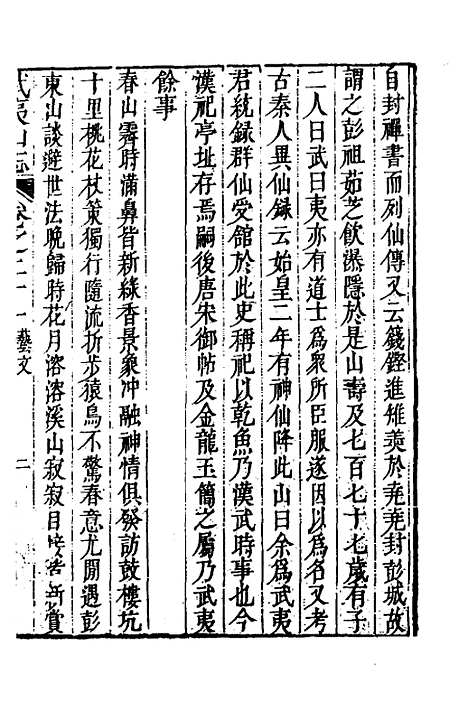 自封禪書而列仙傳又云籛鏗進雉羮於堯堯封彭城故
謂之彭祖茹芝飲瀑隱於是山壽及七百七十七歲有子
二人曰武曰夷亦有道士爲衆所臣服遂因以爲名又考
古秦人異仙録云始皇二年有神仙降此山曰余爲武夷
君統録群仙受舘於此史稱祀以乾魚乃漢武時事也今
漢祀亭址存焉嗣後唐宋御帖及金龍玉簡之屬乃武夷
餘事
春山霽時滿鼻皆新綠香景象冲融神情俱發訪鼓樓坑
十里桃花杖策獨行隨流折步猿鳥不驚春意尤閒遇彭
東山談避世法晩歸時花月溶溶溪山寂寂目
新賞
武夷山志
卷之二十一 藝文 二